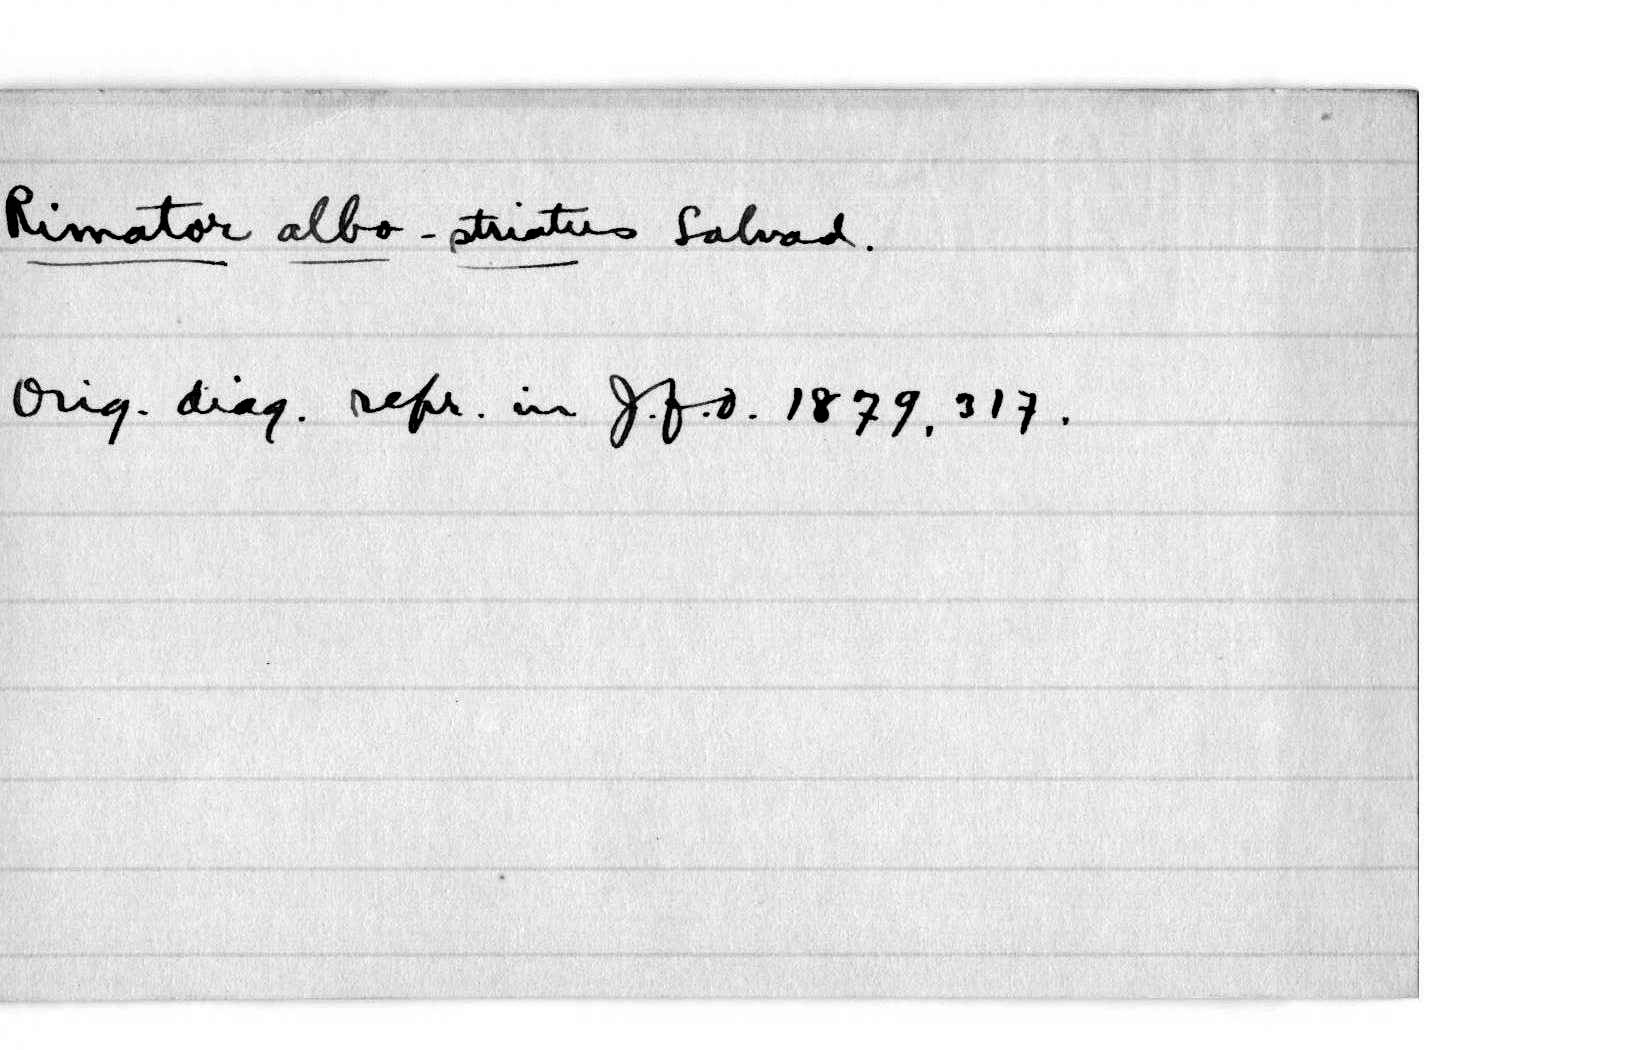 Rimator albo-striatus Salvad.
Orig. diag. repr. in J.f.O. 1879, 317.